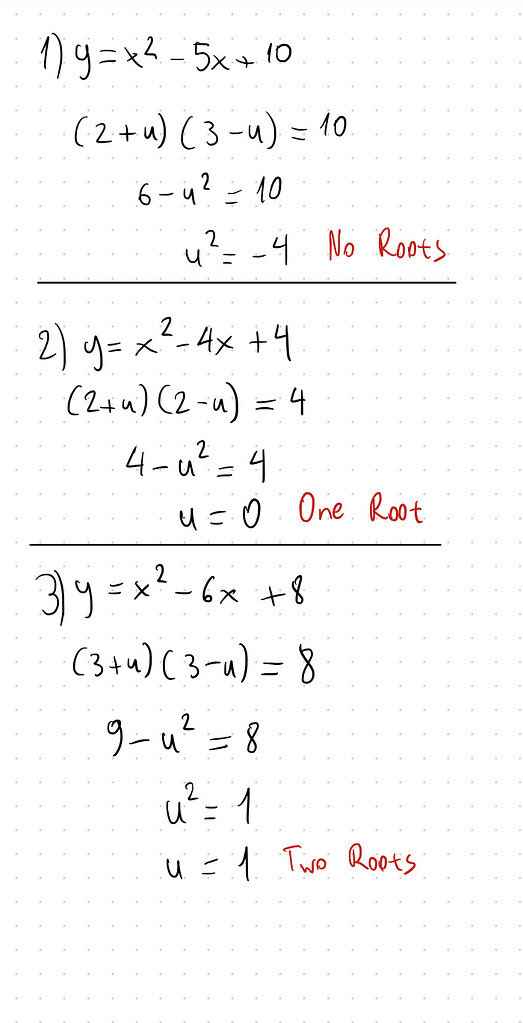 1) y = x² - 5x + 10
(2 + u) (3 - u) = 10
6 - u² = 10
u² = -4 No Roots
2) y = x² - 4x + 4
(2 + u) (2 - u) = 4
4 - u² = 4
u = 0 One Root
3) y = x² - 6x + 8
(3 + u) (3 - u) = 8
9 - u² = 8
u² = 1
u = 1 Two Roots